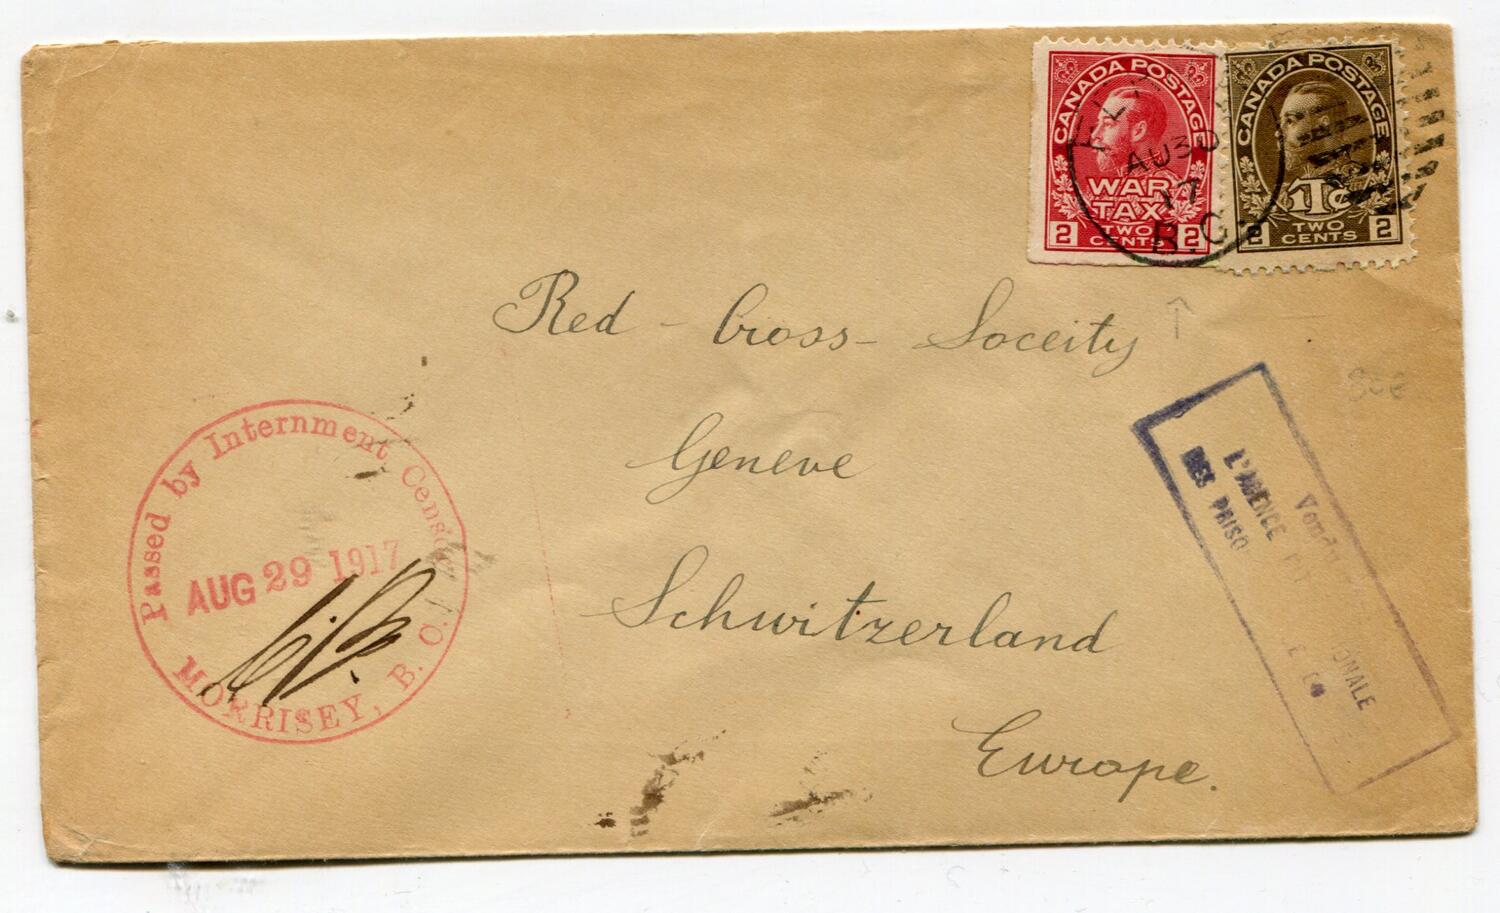 CANADA POSTAGE
WAR
TAX
2 TWO CENTS 2
CANADA POSTAGE
1Tc
2 TWO CENTS 2
AU 30
17
B.C.
Red - Cross - Soceity
Geneve
Schwitzerland
Europe.
Passed by Internment Censor
AUG 29 1917
MORRISEY, B. C.
L'AGENCE
DES PRISO